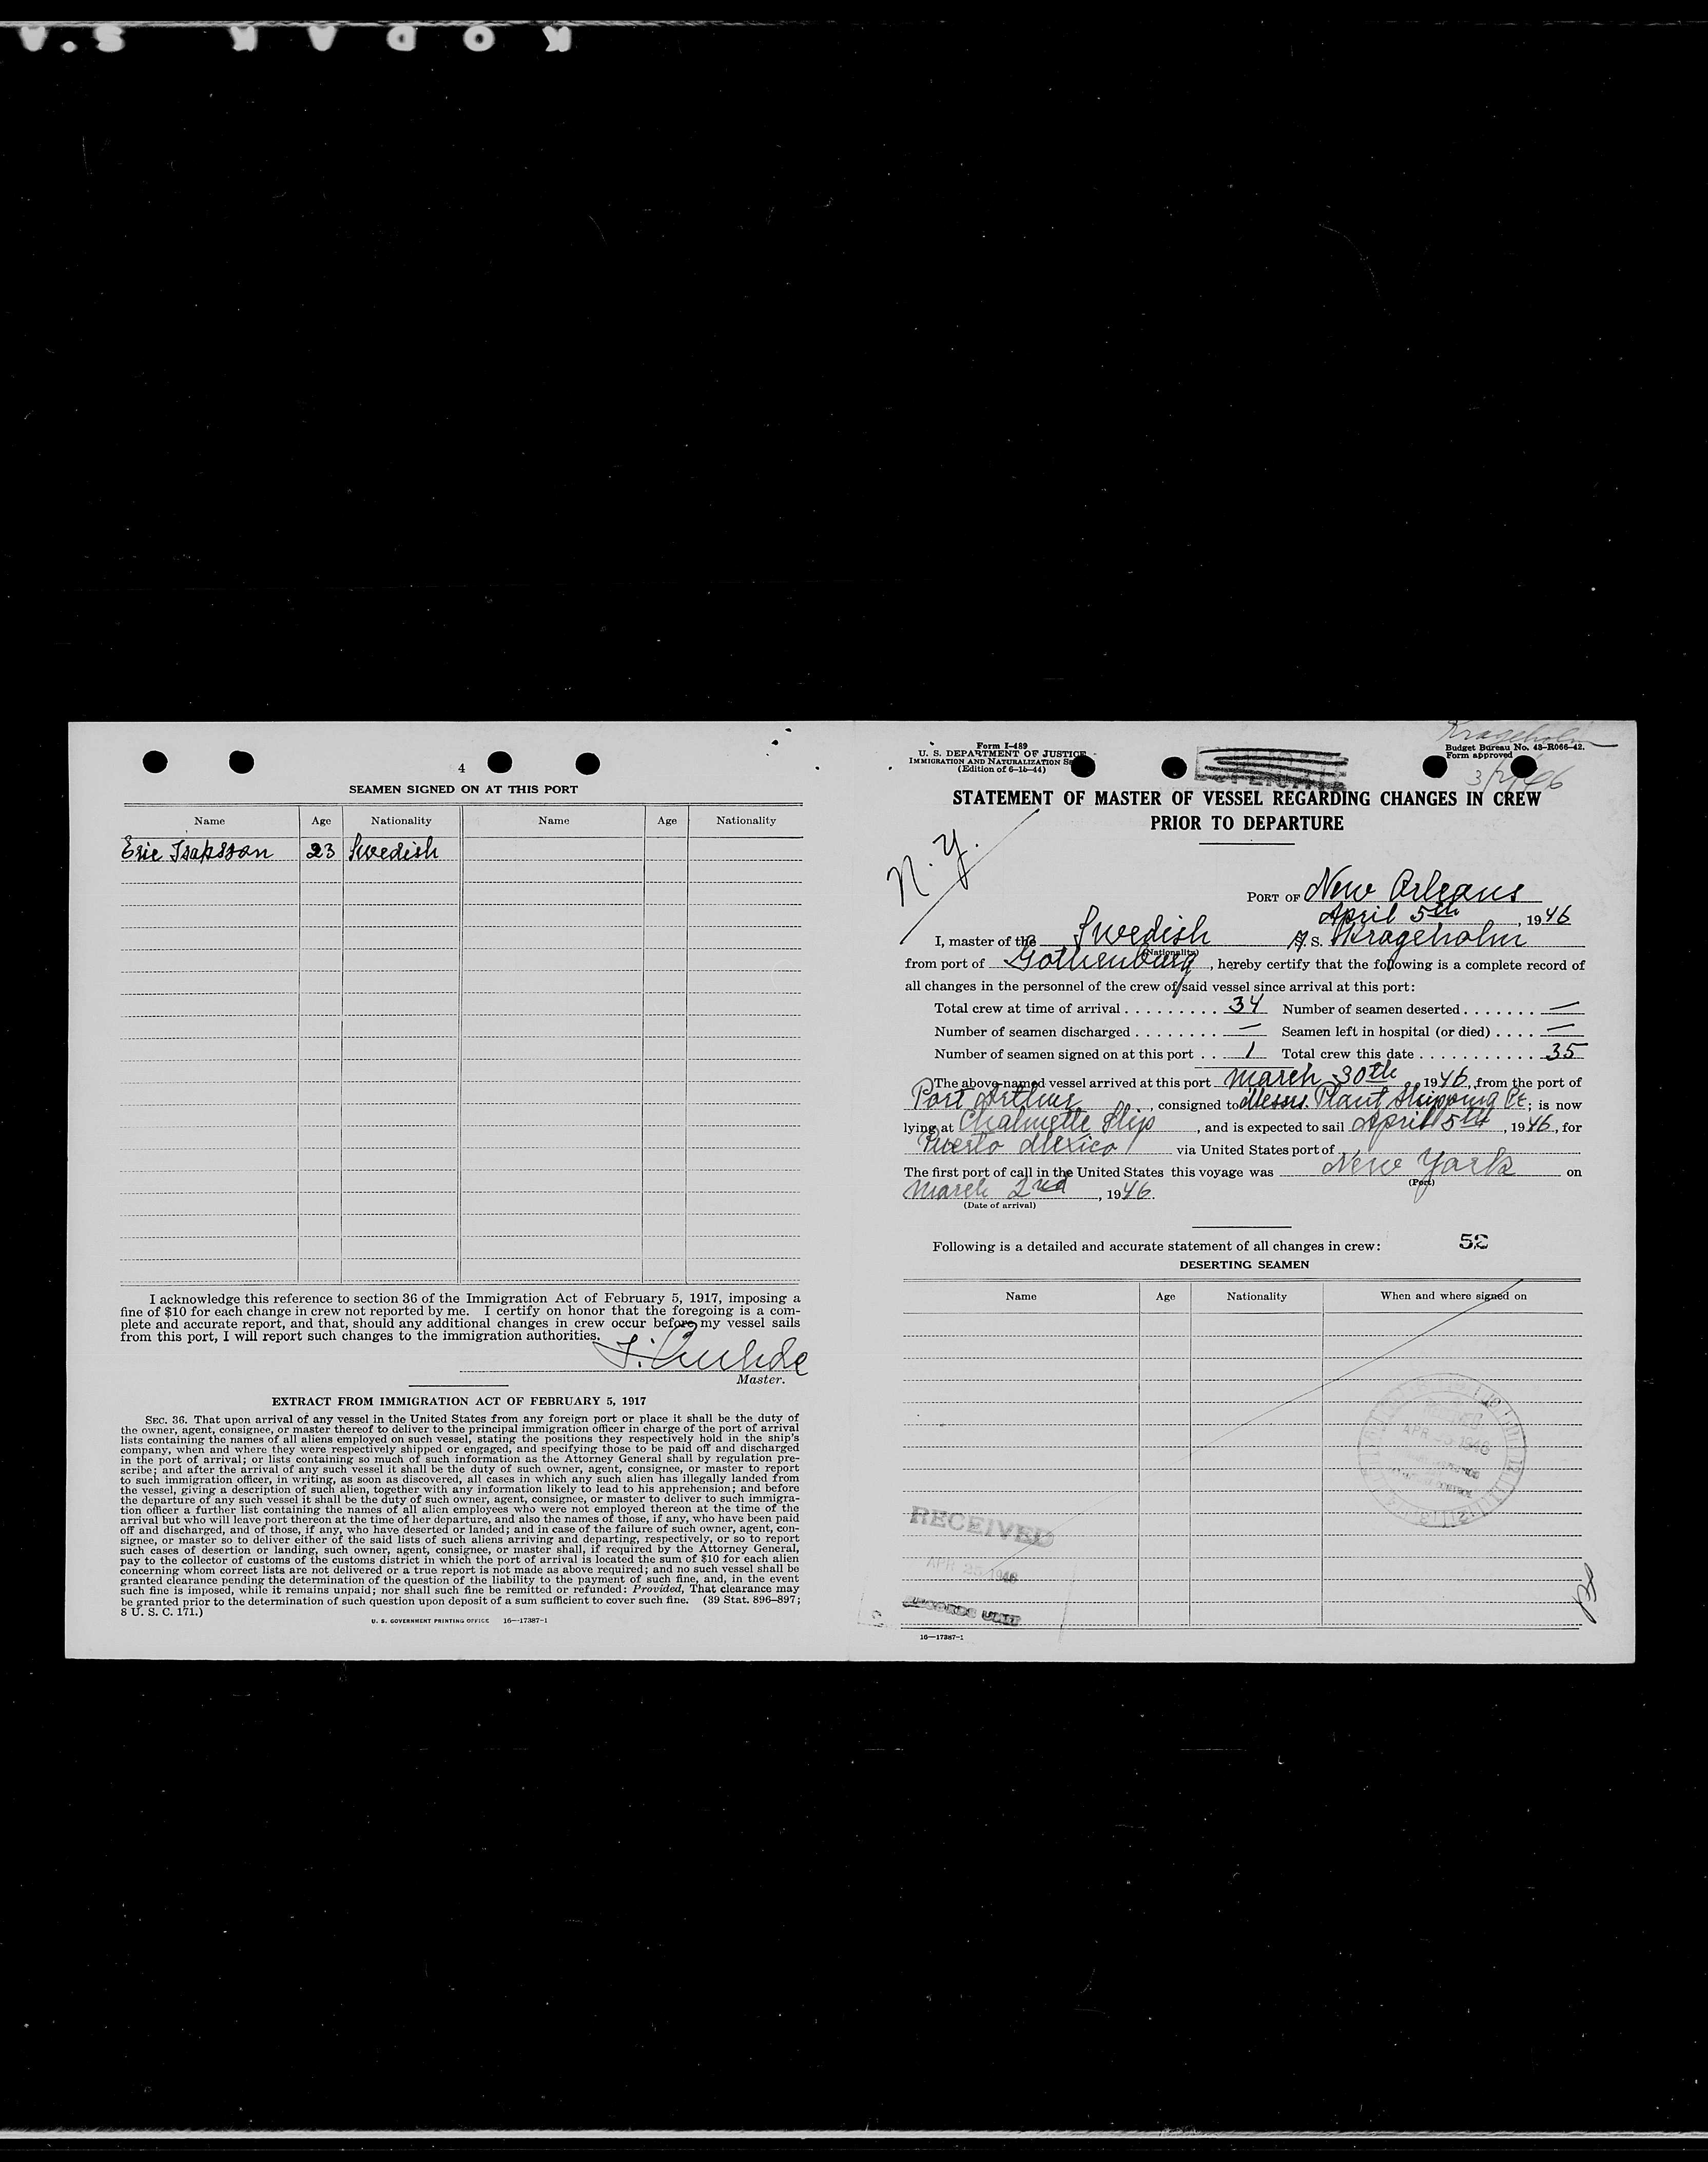 KODAK S.A
4
SEAMEN SIGNED ON AT THIS PORT
Name Age Nationality Name Age Nationality
Eric Isaksson 23 Swedish
I acknowledge this reference to section 36 of the Immigration Act of February 5, 1917, imposing a
fine of $10 for each change in crew not reported by me. I certify on honor that the foregoing is a com-
plete and accurate report, and that, should any additional changes in crew occur before my vessel sails
from this port, I will report such changes to the immigration authorities.
Master.
EXTRACT FROM IMMIGRATION ACT OF FEBRUARY 5, 1917
SEC. 36. That upon arrival of any vessel in the United States from any foreign port or place it shall be the duty of
the owner, agent, consignee, or master thereof to deliver to the principal immigration officer in charge of the port of arrival
lists containing the names of all aliens employed on such vessel, stating the positions they respectively hold in the ship's
company, when and where they were respectively shipped or engaged, and specifying those to be paid off and discharged
in the port of arrival; or lists containing so much of such information as the Attorney General shall by regulation pre-
scribe; and after the arrival of any such vessel it shall be the duty of such owner, agent, consignee, or master to report
to such immigration officer, in writing, as soon as discovered, all cases in which any such alien has illegally landed from
the vessel, giving a description of such alien, together with any information likely to lead to his apprehension; and before
the departure of any such vessel it shall be the duty of such owner, agent, consignee, or master to deliver to such immigra-
tion officer a further list containing the names of all alien employees who were not employed thereon at the time of the
arrival but who will leave port thereon at the time of her departure, and also the names of those, if any, who have been paid
off and discharged, and of those, if any, who have deserted or landed; and in case of the failure of such owner, agent, con-
signee, or master so to deliver either of the said lists of such aliens arriving and departing, respectively, or so to report
such cases of desertion or landing, such owner, agent, consignee, or master shall, if required by the Attorney General,
pay to the collector of customs of the customs district in which the port of arrival is located the sum of $10 for each alien
concerning whom correct lists are not delivered or a true report is not made as above required; and no such vessel shall be
granted clearance pending the determination of the question of the liability to the payment of such fine, and, in the event
such fine is imposed, while it remains unpaid; nor shall such fine be remitted or refunded: Provided, That clearance may
be granted prior to the determination of such question upon deposit of a sum sufficient to cover such fine. (39 Stat. 896-897;
8 U. S. C. 171.)
U. S. GOVERNMENT PRINTING OFFICE 16—17387-1
Krageholm
Form I-489
U. S. DEPARTMENT OF JUSTICE
IMMIGRATION AND NATURALIZATION
(Edition of 6-15-44)
Budget Bureau No. 43-R066-42.
Form approved
3/2/46
STATEMENT OF MASTER OF VESSEL REGARDING CHANGES IN CREW
PRIOR TO DEPARTURE
N.Y.
PORT OF New Orleans
April 5th, 1946
I, master of the Swedish S. S. Krageholm
(Nationality)
from port of Gothenburg, hereby certify that the following is a complete record of
all changes in the personnel of the crew of said vessel since arrival at this port:
Total crew at time of arrival 34 Number of seamen deserted —
Number of seamen discharged — Seamen left in hospital (or died) —
Number of seamen signed on at this port 1 Total crew this date 35
The above-named vessel arrived at this port March 30th, 1946, from the port of
Port Arthur, consigned to Messrs. Plant Shipping Co; is now
lying at Chalmette Slip, and is expected to sail April 5th, 1946, for
Puerto Mexico via United States port of
The first port of call in the United States this voyage was New York on
(Port)
March 2nd, 1946.
(Date of arrival)
Following is a detailed and accurate statement of all changes in crew: 52
DESERTING SEAMEN
Name Age Nationality When and where signed on
APR 1946
RECEIVED
APR 25 1946
RECORDS UNIT
16—17387-1